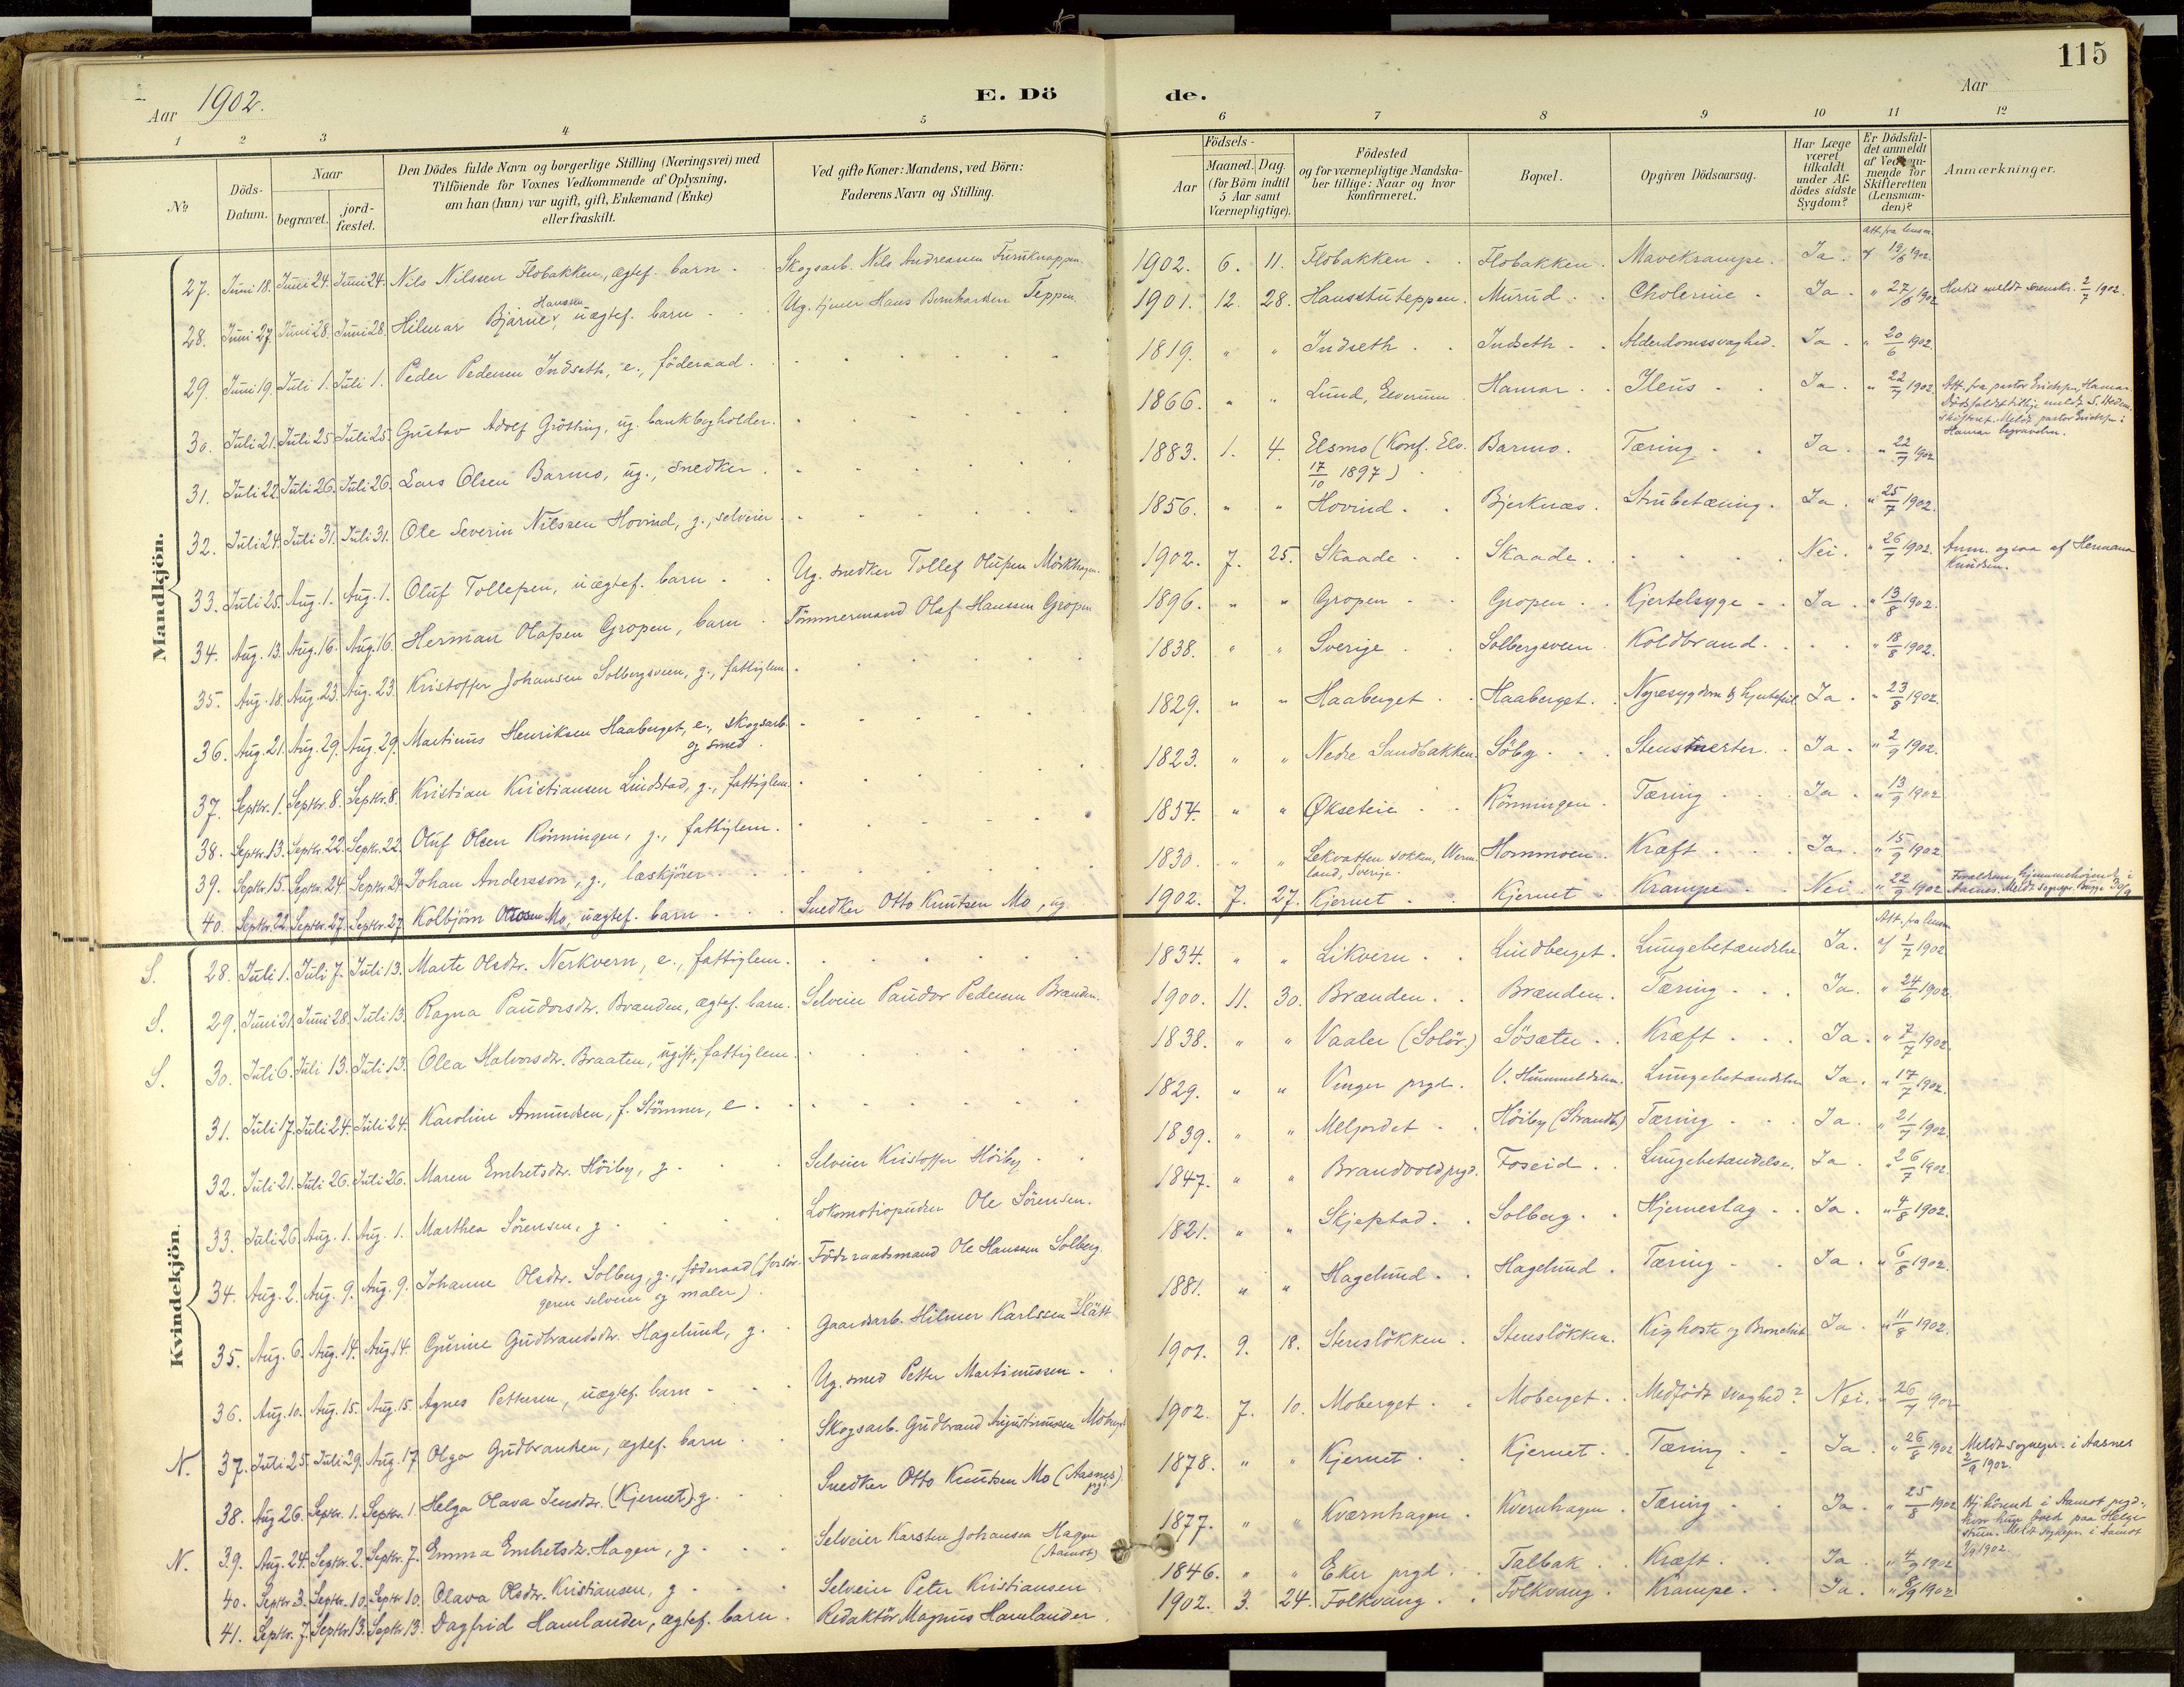 115
Aar 1902.
E. Dö
de.
Aar
1 2 3 4 5 6 7 8 9 10 11 12
No
Döds-Datum.
Naar
begravet.
jord-fæstet.
Den Dödes fulde Navn og borgerlige Stilling (Næringsvei) med
Tilföiende for Voxnes Vedkommende af Oplysning,
om han (hun) var ugift, gift, Enkemand (Enke)
eller fraskilt.
Ved gifte Koner: Mandens, ved Börn:
Faderens Navn og Stilling.
Födsels-
Aar
Maaned. Dag.
(for Börn indtil
5 Aar samt
Værnepligtige).
Födested
og for værnepligtige Mandska-
ber tillige: Naar og hvor
konfirmeret.
Bopæl.
Opgiven Dödsaarsag.
Har Læge
været
tilkaldt
under Af-
dödes sidste
Sygdom?
Er Dödsfal-
det anmeldt
af Vedkom-
mende for
Skifteretten
(Lensman-
den)?
Anmærkninger.
Mandkjön.
Att. fra lensm.
27. Juni 18. Juni 24. Juni 24. Nils Nilssen Flobakken, ægtef. barn. Skogsarb. Nils Andreasen Furuknappen. 1902. 6. 11. Flobakken. Flobakken. Mavekrampe. Ja. af 19/6 1902.
28. Juni 27. Juni 28. Juni 28. Hilmar Bjarne Hanssen, uægtef. barn. Ug. tjener Hans Bernhardsen Teppen. 1901. 12. 28. Hansstuteppen. Murud. Cholerine. Ja. " 27/6 1902. meldt 2/7 1902.
29. Juni 19. Juli 1. Juli 1. Peder Pedersen Indseth, e., föderaad. 1819. " " Indseth. Indseth. Alderdomssvaghed. Ja. " 20/6 1902.
30. Juli 21. Juli 25. Juli 25. Gustav Adolf Grötting, ug. bankbogholder. 1866. " " Lund, Elverum. Hamar. Ileus. Ja. " 22/7 1902. Att. fra pastor Erichsen, Hamar.
Dödsfaldet tillige meldt S. Hedem.
Meldt pastor Erichsen i
Hamar begravelsen.
31. Juli 22. Juli 26. Juli 26. Lars Olsen Barmo, ug., snedker. 1883. 1. 4. Elsmo (Konf. Elv. 17/10 1897) Barmo. Tæring. Ja. " 22/7 1902
32. Juli 24. Juli 31. Juli 31. Ole Severin Nilssen Hovind, g., selveier. 1856. " " Hovind. Bjerknæs. Strubetæring. Ja. " 25/7 1902.
33. Juli 25. Aug. 1. Aug. 1. Oluf Tollefsen, uægtef. barn. Ug. snedker Tollef Olufsen Mörkhagen. 1902. 7. 25. Skaade. Skaade. Nei. " 26/7 1902. Anm. ogsaa af Hermana
Knudsen.
34. Aug. 13. Aug. 16. Aug. 16. Herman Olafsen Gropen, barn. Tömmermand Olaf Hanssen Gropen 1896. " " Gropen. Gropen. Kjertelsyge. Ja. " 13/8 1902.
35. Aug. 18. Aug. 23. Aug. 23. Kristoffer Johansen Solbergsveen, g., fattiglem. 1838. " " Sverige. Solbergsveen. Koldbrand. " 18/8 1902.
36. Aug. 21. Aug. 29. Aug. 29. Martinus Henriksen Haaberget, e., skogsarb.
og smed. 1829. " " Haaberget. Haaberget. Nyresygdom & hjertefeil Ja. " 23/8 1902.
37. Septbr. 1. Septbr. 8. Septbr. 8. Kristian Kristiansen Lindstad, g., fattiglem. 1823. " " Nedre Sandbakken. Söby. Stensmerter. Ja. " 2/9 1902.
38. Septbr. 13. Septbr. 22. Septbr. 22. Oluf Olsen Rönningen, g., fattiglem. 1854. " " Økseteie. Rönningen. Tæring. Ja. " 13/9 1902
39. Septbr. 15. Septbr. 24. Septbr. 24. Johan Andersson, g., læskjörer. 1830. " " Lekvatten sokken, Werm-
land, Sverige. Hommoen. Kræft. Ja. " 15/9 1902
40. Septbr. 22. Septbr. 27. Septbr. 27. Kolbjörn Ottosen Mo, uægtef. barn. Snedker Otto Knutsen Mo, ug. 1902. 7. 27. Kjernet. Kjernet. Krampe. Nei. " 22/9 1902 Forældrene hjemmehörende i
Aasnes. Meldt sognepr. 30/9
Kvindekjön.
Att. fra lensm.
S. 28. Juli 1. Juli 7. Juli 13. Marte Olsdtr. Nerkvern, e., fattiglem. 1834. " " Likvern. Lindberget. Lungebetændelse. Ja. af 1/7 1902.
S. 29. Juni 21. Juni 28. Juli 13. Ragna Paudorsdtr. Brænden, ægtef. barn. Selveier Paudor Pedersen Brænden. 1900. 11. 30. Brænden. Brænden. Tæring. Ja. " 24/6 1902.
S. 30. Juli 6. Juli 13. Juli 13. Olea Halvorsdtr. Braaten, ugift, fattiglem. 1838. " " Vaaler (Solör.) Sösæter. Kræft. Ja. " 7/7 1902.
31. Juli 17. Juli 24. Juli 24. Karoline Amundsen, f. Stömner, e. 1829. " " Vinger prgd. V. Hummeldalen. Lungebetændelse Ja. " 17/7 1902.
32. Juli 21. Juli 26. Juli 26. Maren Embretsdtr. Höiby, g. Selveier Kristoffer Höiby. 1839. " " Meljordet. Höiby (Strandb.) Tæring. Ja. " 21/7 1902.
33. Juli 26. Aug. 1. Aug. 1. Marthea Sörensen, g. Lokomotivpudser Ole Sörensen. 1847. " " Brandvold prgd. Foseid. Lungebetændelse. Ja. " 26/7 1902.
34. Aug. 2. Aug. 9. Aug. 9. Johanne Olsdtr. Solberg, g., föderaad (forsör-
geren selveier og maler). Föderaadsmand Ole Hanssen Solberg. 1821. " " Skjefstad. Solberg. Hjerneslag. Ja. " 4/8 1902.
35. Aug. 6. Aug. 14. Aug. 14. Gurine Gudbrandsdtr. Hagelund, g. Gaardsarb. Hilmer Karlssen Slått 1881. " " Hagelund. Hagelund. Tæring. Ja. " 6/8 1902.
36. Aug. 10. Aug. 15. Aug. 15. Agnes Pettersen, uægtef. barn. Ug. smed Petter Martinussen. 1901. 9. 18. Stenslökken. Stenslökken. Kighoste og Bronchit Ja. " 11/8 1902.
N. 37. Juli 25. Juli 29. Aug. 17 Olga Gudbrandsen, ægtef. barn. Skogsarb. Gudbrand Augustinussen Moberget 1902. 7. 10. Moberget. Moberget. Medfödt svaghed? Nei. " 26/7 1902
38. Aug 26. Septbr. 1. Septbr. 1. Helga Olava Jensdtr. (Kjernet), g. Snedker Otto Knutsen Mo (Aasnes)
prgd. 1878. " " Kjernet. Kjernet. Tæring. Ja. " 26/8 1902 Meldt sognepr. i Aasnes
2/9 1902.
N. 39. Aug. 24. Septbr. 2. Septbr. 7. Emma Embretsdtr. Hagen, g. Selveier Karsten Johansen Hagen
(Aamot) 1877. " " Kværnhagen. Kvernhagen. Tæring. Ja. " 25/8 1902 Hj.hörende i Aamot prgd.,
Meldt sognepr. i Aamot
9/9 1902.
40. Septbr 3. Septbr. 10. Septbr 10. Olava Olsdtr. Kristiansen, g. Selveier Peter Kristiansen 1846. " " Eker prgd. Talbak. Kræft. Ja. " 4/9 1902
41. Septbr. 7. Septbr. 13. Septbr 13. Dagfrid Hamlander, ægtef. barn. Redaktör Magnus Hamlander. 1902. 3. 24. Folkvang. Folkvang. Krampe. Ja. " 8/9 1902